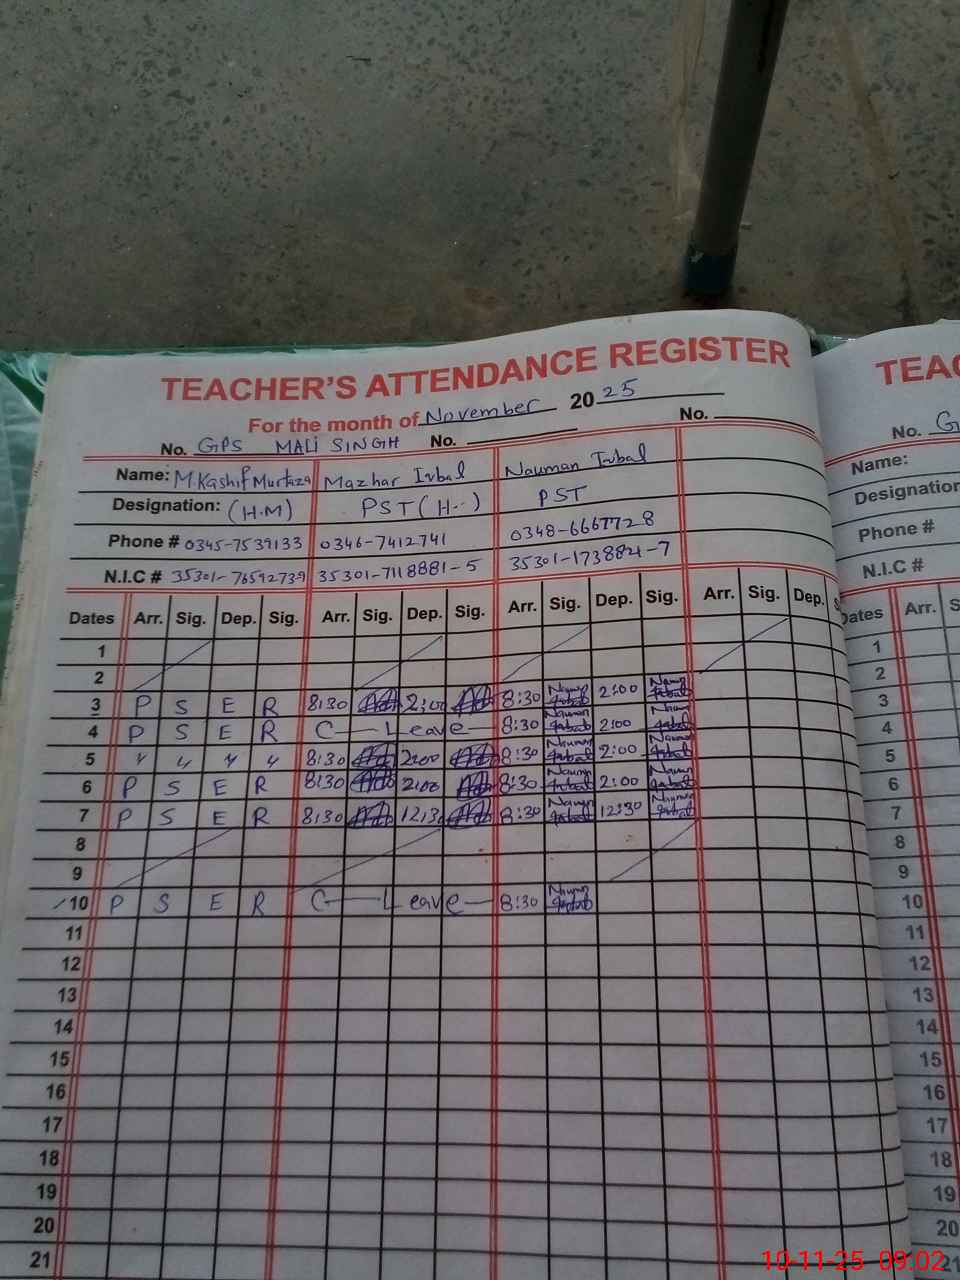 TEACHER'S ATTENDANCE REGISTER
For the month of November 2025
No. GPS MALI SINGH No. No.
Name: M.Kashif Murtaza Mazhar Iqbal Nauman Iqbal
Designation: (H.M) PST (H..) PST
Phone # 0345-7539133 0346-7412741 0348-6667728
N.I.C # 35301-76592739 35301-7118881-5 35301-1738821-7
Dates Arr. Sig. Dep. Sig. Arr. Sig. Dep. Sig. Arr. Sig. Dep. Sig. Arr. Sig. Dep. S
1
2
3 P S E R 8:30 2:00 8:30 Nauman Iqbal 2:00 Nauman Iqbal
4 P S E R C Leave 8:30 Nauman Iqbal 2:00 Nauman Iqbal
5 " " " " 8:30 2:00 8:30 Nauman Iqbal 2:00 Nauman Iqbal
6 P S E R 8:30 2:00 8:30 Nauman Iqbal 2:00 Nauman Iqbal
7 P S E R 8:30 12:30 8:30 Nauman Iqbal 12:30 Nauman Iqbal
8
9
10 P S E R C Leave 8:30 Nauman Iqbal
11
12
13
14
15
16
17
18
19
20
21
TEAC
No. G
Name:
Designation
Phone #
N.I.C #
Dates Arr. S
1
2
3
4
5
6
7
8
9
10
11
12
13
14
15
16
17
18
19
20
21
10-11-25 09:02